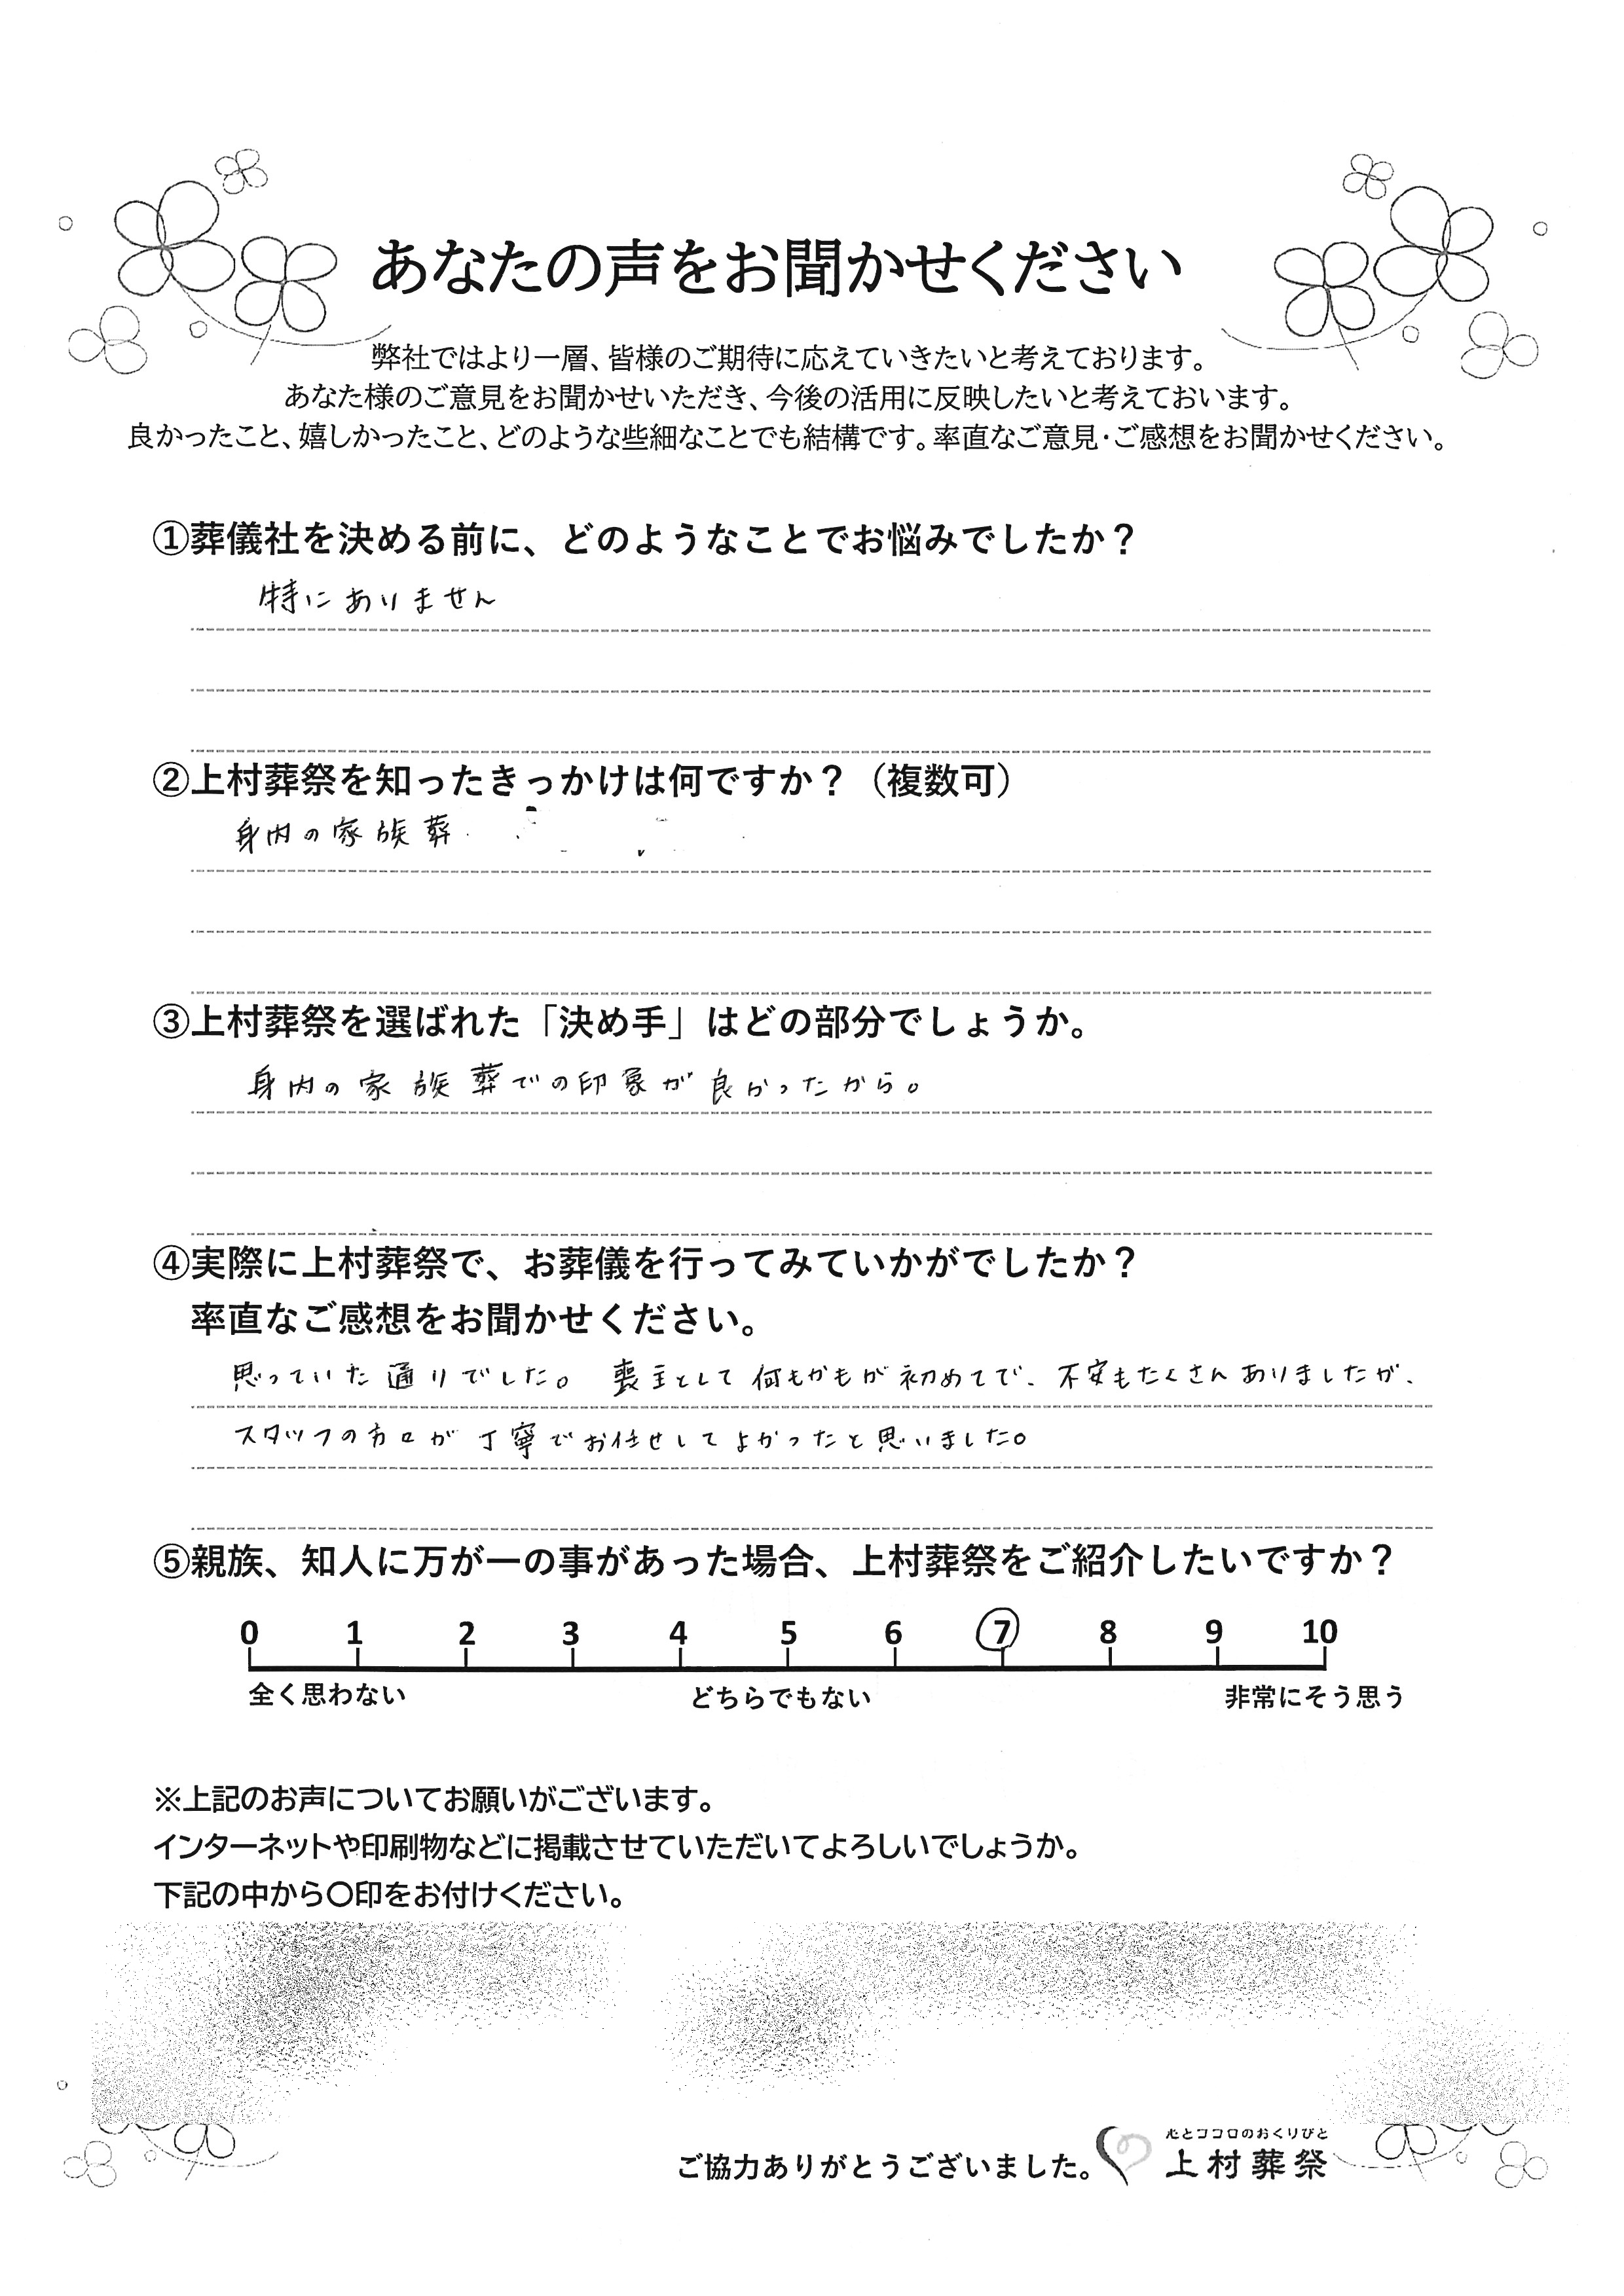 あなたの声をお聞かせください
弊社ではより一層、皆様のご期待に応えていきたいと考えております。
あなた様のご意見をお聞かせいただき、今後の活用に反映したいと考えておいます。
良かったこと、嬉しかったこと、どのような些細なことでも結構です。率直なご意見・ご感想をお聞かせください。
①葬儀社を決める前に、どのようなことでお悩みでしたか？
特にありません
②上村葬祭を知ったきっかけは何ですか？（複数可）
身内の家族葬
③上村葬祭を選ばれた「決め手」はどの部分でしょうか。
身内の家族葬での印象が良かったから。
④実際に上村葬祭で、お葬儀を行ってみていかがでしたか？
率直なご感想をお聞かせください。
思っていた通りでした。喪主として何もかもが初めてで、不安もたくさんありましたが、
スタッフの方々が丁寧でお任せしてよかったと思いました。
⑤親族、知人に万が一の事があった場合、上村葬祭をご紹介したいですか？
0 1 2 3 4 5 6 7 8 9 10
全く思わない どちらでもない 非常にそう思う
※上記のお声についてお願いがございます。
インターネットや印刷物などに掲載させていただいてよろしいでしょうか。
下記の中から〇印をお付けください。
心とココロのおくりびと
ご協力ありがとうございました。 上村葬祭